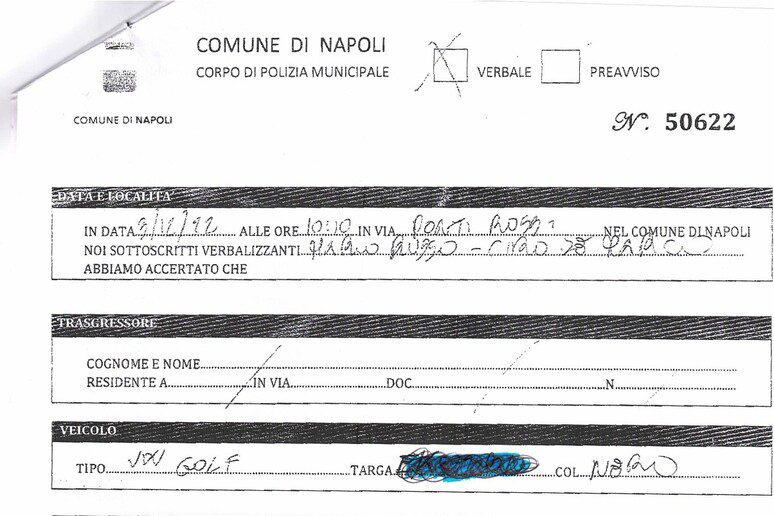 COMUNE DI NAPOLI
CORPO DI POLIZIA MUNICIPALE
VERBALE PREAVVISO
COMUNE DI NAPOLI
N°. 50622
DATA E LOCALITA'
IN DATA ALLE ORE 10:10 IN VIA PONTI ROSSI NEL COMUNE DI NAPOLI
NOI SOTTOSCRITTI VERBALIZZANTI MARIO RUSSO - CIRO
ABBIAMO ACCERTATO CHE
TRASGRESSORE
COGNOME E NOME
RESIDENTE A IN VIA DOC N
VEICOLO
TIPO VW GOLF TARGA COL NERO